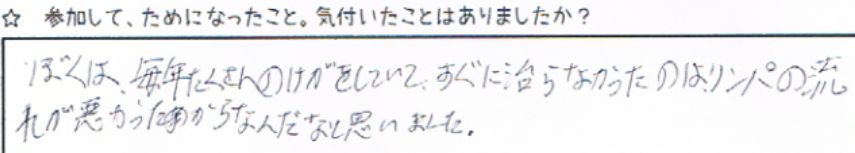 ☆ 参加して、ためになったこと。気付いたことはありましたか?
ぼくは、毎年たくさんのけがをしていて、すぐに治らなかったのは、リンパの流
れが悪かったからなんだなと思いました。